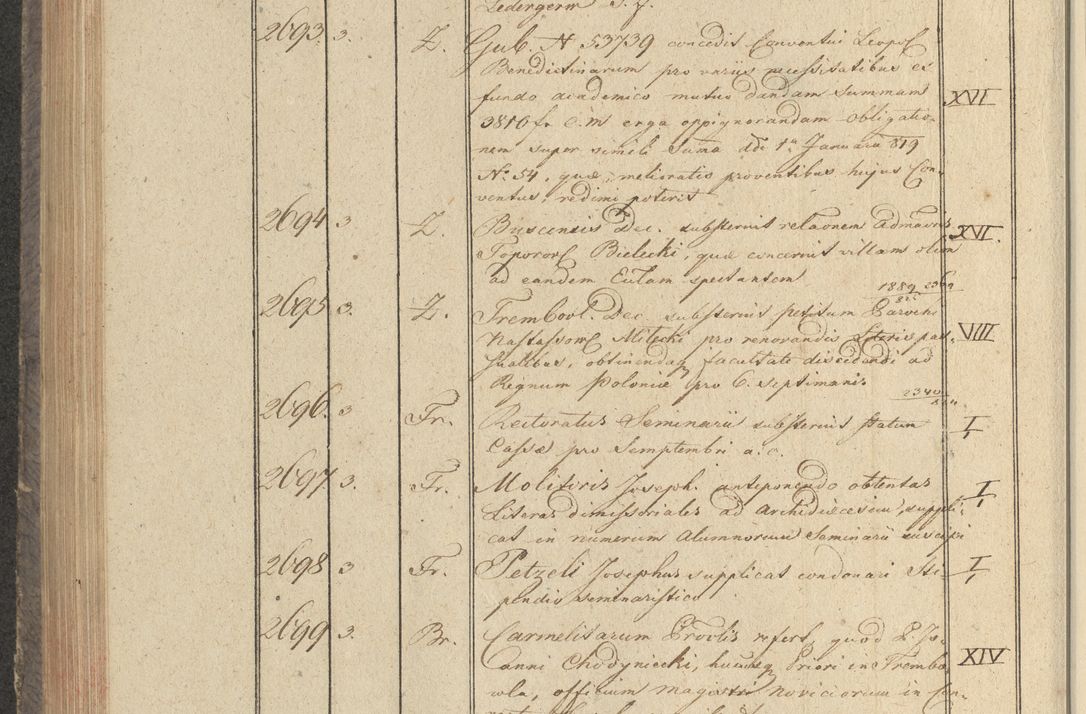 Ledergerw S. J.
2693. 3. Z. Gub. N 53739 concedit Conventui Leopol
Benedictinarum pro variis necessitatibus ex
fundo academico mutuo dandam summam
3810 fr C.M. erga oppignorandam obligatio-
nem super simili Suma ddi 1a Januarii 819
No. 54, quae melioratis proventibus hujus Con-
ventus, redimi poterit
XVI
2694 3 Z. Buscensis Dec. substernit relaonem Admnris
Toporov Bielecki, quae concernit villam olim
ad eandem Eclam spectantem
XVI.
1889 2369
2695 3. Z. Trembovl. Dec. substernit petitum Parochi
Nastassow Milecki pro renovandis Literis pas-
sualibus, obtinendaq facultate discedendi ad
Regnum Poloniae pro 6. septimanis
VIII
2340
2696. 3 Fr. Rectoratus Seminarii substernit statum
Cassae pro Semptembri a. c.
I
2697 3. Fr. Molitoris Joseph. anteponendo obtentas
Literas dimissoriales ad Archidioecesim, suppli-
cat in numerum Alumnorum Seminarii suscipi
I
2698 3 Fr. Petzeli Josephus supplicat condonari Sti-
pendio seminaristico
I
2699 3. Br. Carmelitarum Provlis refert, quod P. Jo-
anni Chodyniecki, hucusq Priori in Trembo
wla, officium magistri noviciorum in Con-
XIV